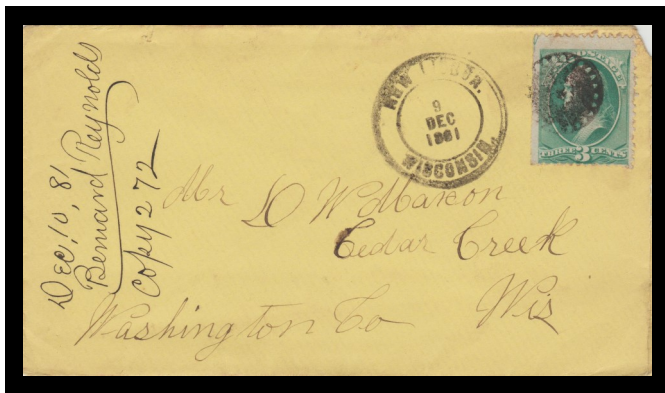 Dec. 10, 81
Bernard Reynolds
Copy 272
NEW LONDON.
9
DEC
1881
WISCONSIN.
THREE 3 CENTS
Mr D W Maxon
Cedar Creek
Washington Co Wis